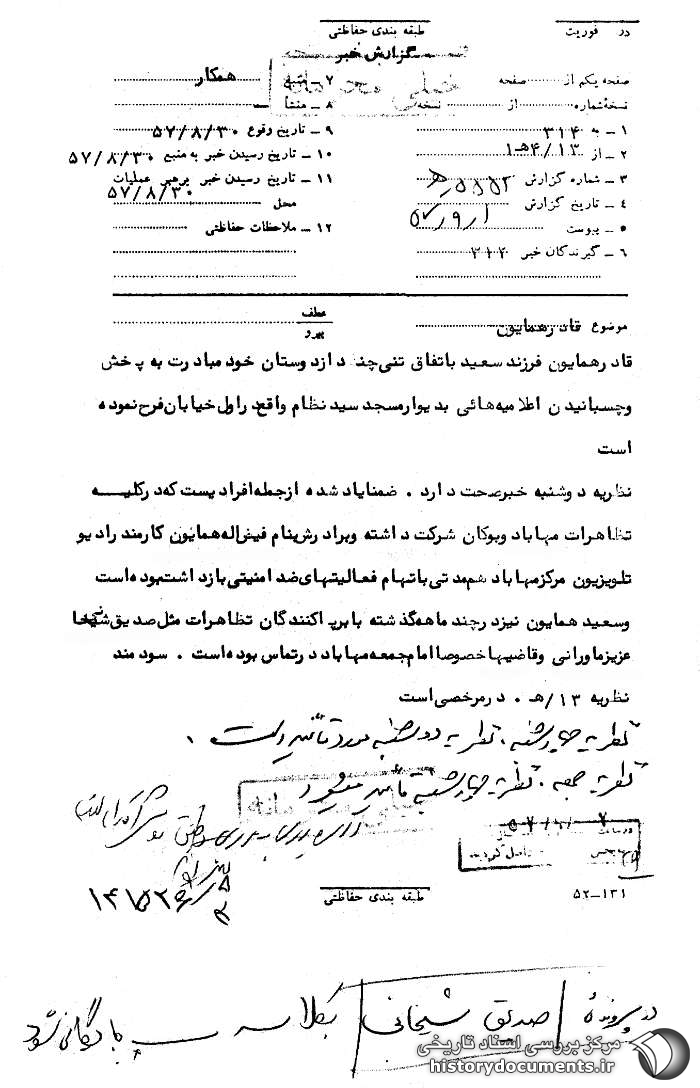 در فوریت
طبقه بندی حفاظتی
گزارش خبر
خیلی محرمانه
صفحه یکم از صفحه
نسخهشماره از نسخه
۱ ـ به ۳۱۴
۲ ـ از ۴/۱۳هـ۱
۳ ـ شماره گزارش
٤ ـ تاریخ گزارش
۵ ـ پیوست
٦ ـ گیرندگان خبر ۳۱۲
۷ ـ منبع همکار
۸ ـ منشأ
۹ ـ تاریخ وقوع ۵۷/۸/۳۰
۱۰ ـ تاریخ رسیدن خبر به منبع ۵۷/۸/۳۰
۱۱ ـ تاریخ رسیدن خبر برهبر عملیات
محل ۵۷/۸/۳۰
۱۲ ـ ملاحظات حفاظتی
موضوع قادرهمایون
عطف
پیرو
قادرهمایون فرزند سعید باتفاق تنی چند از دوستان خود مبادرت به پخش
وچسبانیدن اعلامیه هائی بدیوارمسجد سید نظام واقع دراول خیابان فرح نموده
است
نظریه دوشنبه خبرصحت دارد . ضمنایاد شده ازجمله افرادیست که درکلیه
تظاهرات مهاباد وبوکان شرکت داشته وبرادرش بنام فیض اله همایون کارمند رادیو
تلویزیون مرکزمهاباد هم مدتی باتهام فعالیتهای ضد امنیتی بازداشت بوده است
وسعید همایون نیزدرچند ماهه گذشته بابرپاکنندگان تظاهرات مثل صدیق شیخا
عزیزماورانی وقاضیها خصوصا امام جمعه مهاباد درتماس بوده است . سودمند
نظریه ۱۳/هـ . درمرخصی است
نظریه چهارشنبه . نظریه دوشنبه مورد تأئید است .
نظریه جمعه . نظریه چهارشنبه تأئید میشود
۵۲-۱۳۱
طبقه بندی حفاظتی
در پرونده صدیق شیخانی بکلاسه بایگانی شود
مرکز بررسی اسناد تاریخی
historydocuments.ir